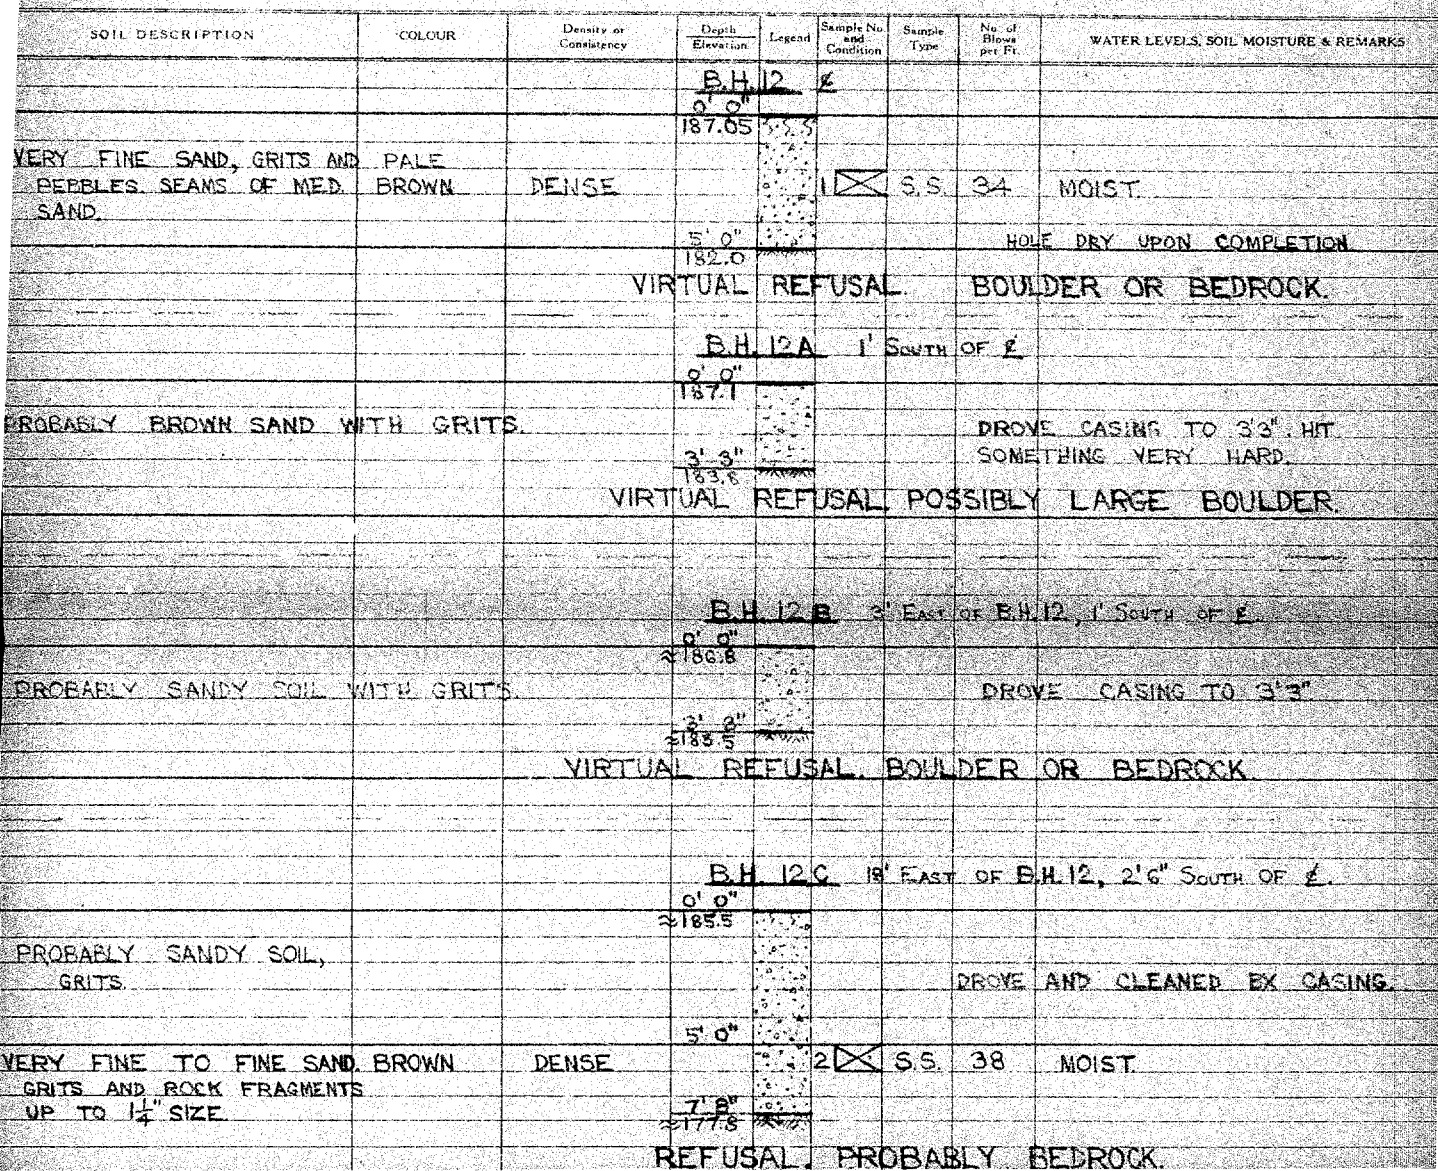 SOIL DESCRIPTION COLOUR Density or Consistency Depth Elevation Legend Sample No. and Condition Sample Type No. of Blows per Ft. WATER LEVELS, SOIL MOISTURE & REMARKS
B.H. 12 ℄
0' 0"
187.05
VERY FINE SAND, GRITS AND PALE
PEBBLES. SEAMS OF MED. BROWN DENSE 1 S.S. 34 MOIST.
SAND.
5' 0" HOLE DRY UPON COMPLETION
182.0
VIRTUAL REFUSAL. BOULDER OR BEDROCK.
B.H. 12A 1' SOUTH OF ℄
0' 0"
187.1
PROBABLY BROWN SAND WITH GRITS. DROVE CASING TO 3'3". HIT
3' 3" SOMETHING VERY HARD.
183.8
VIRTUAL REFUSAL. POSSIBLY LARGE BOULDER.
B.H. 12B 3' EAST OF B.H. 12, 1' SOUTH OF ℄
0' 0"
≈186.8
PROBABLY SANDY SOIL WITH GRITS DROVE CASING TO 3'3"
3' 3"
≈183.5
VIRTUAL REFUSAL. BOULDER OR BEDROCK
B.H. 12C EAST OF B.H. 12, 2'6" SOUTH OF ℄.
0' 0"
≈185.5
PROBABLY SANDY SOIL,
GRITS. DROVE AND CLEANED BX CASING.
5' 0"
VERY FINE TO FINE SAND. BROWN DENSE 2 S.S. 38 MOIST.
GRITS AND ROCK FRAGMENTS
UP TO 1¼" SIZE. 7' 8"
≈177.8
REFUSAL. PROBABLY BEDROCK.